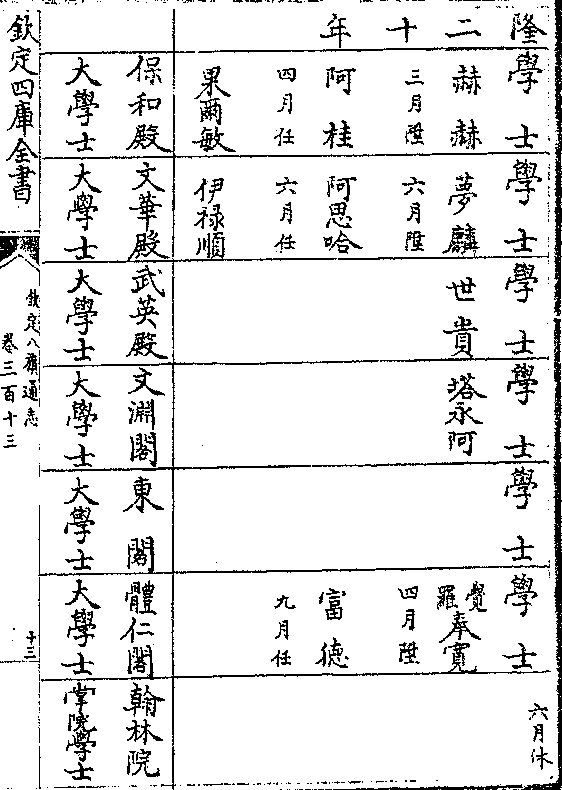 隆二十年
學士
赫赫
三月陞
阿桂
四月任
果爾敏
保和殿
大學士
學士
夢麟
六月陞
阿思哈
六月任
伊祿順
文華殿
大學士
學士
世貴
武英殿
大學士
學士
塔永阿
文淵閣
大學士
學士
東閣
大學士
學士
覺羅奉寬
四月陞
富德
九月任
體仁閣
大學士
六月休
翰林院
掌院學士
欽定四庫全書
欽定八旗通志
卷三百十三
十三